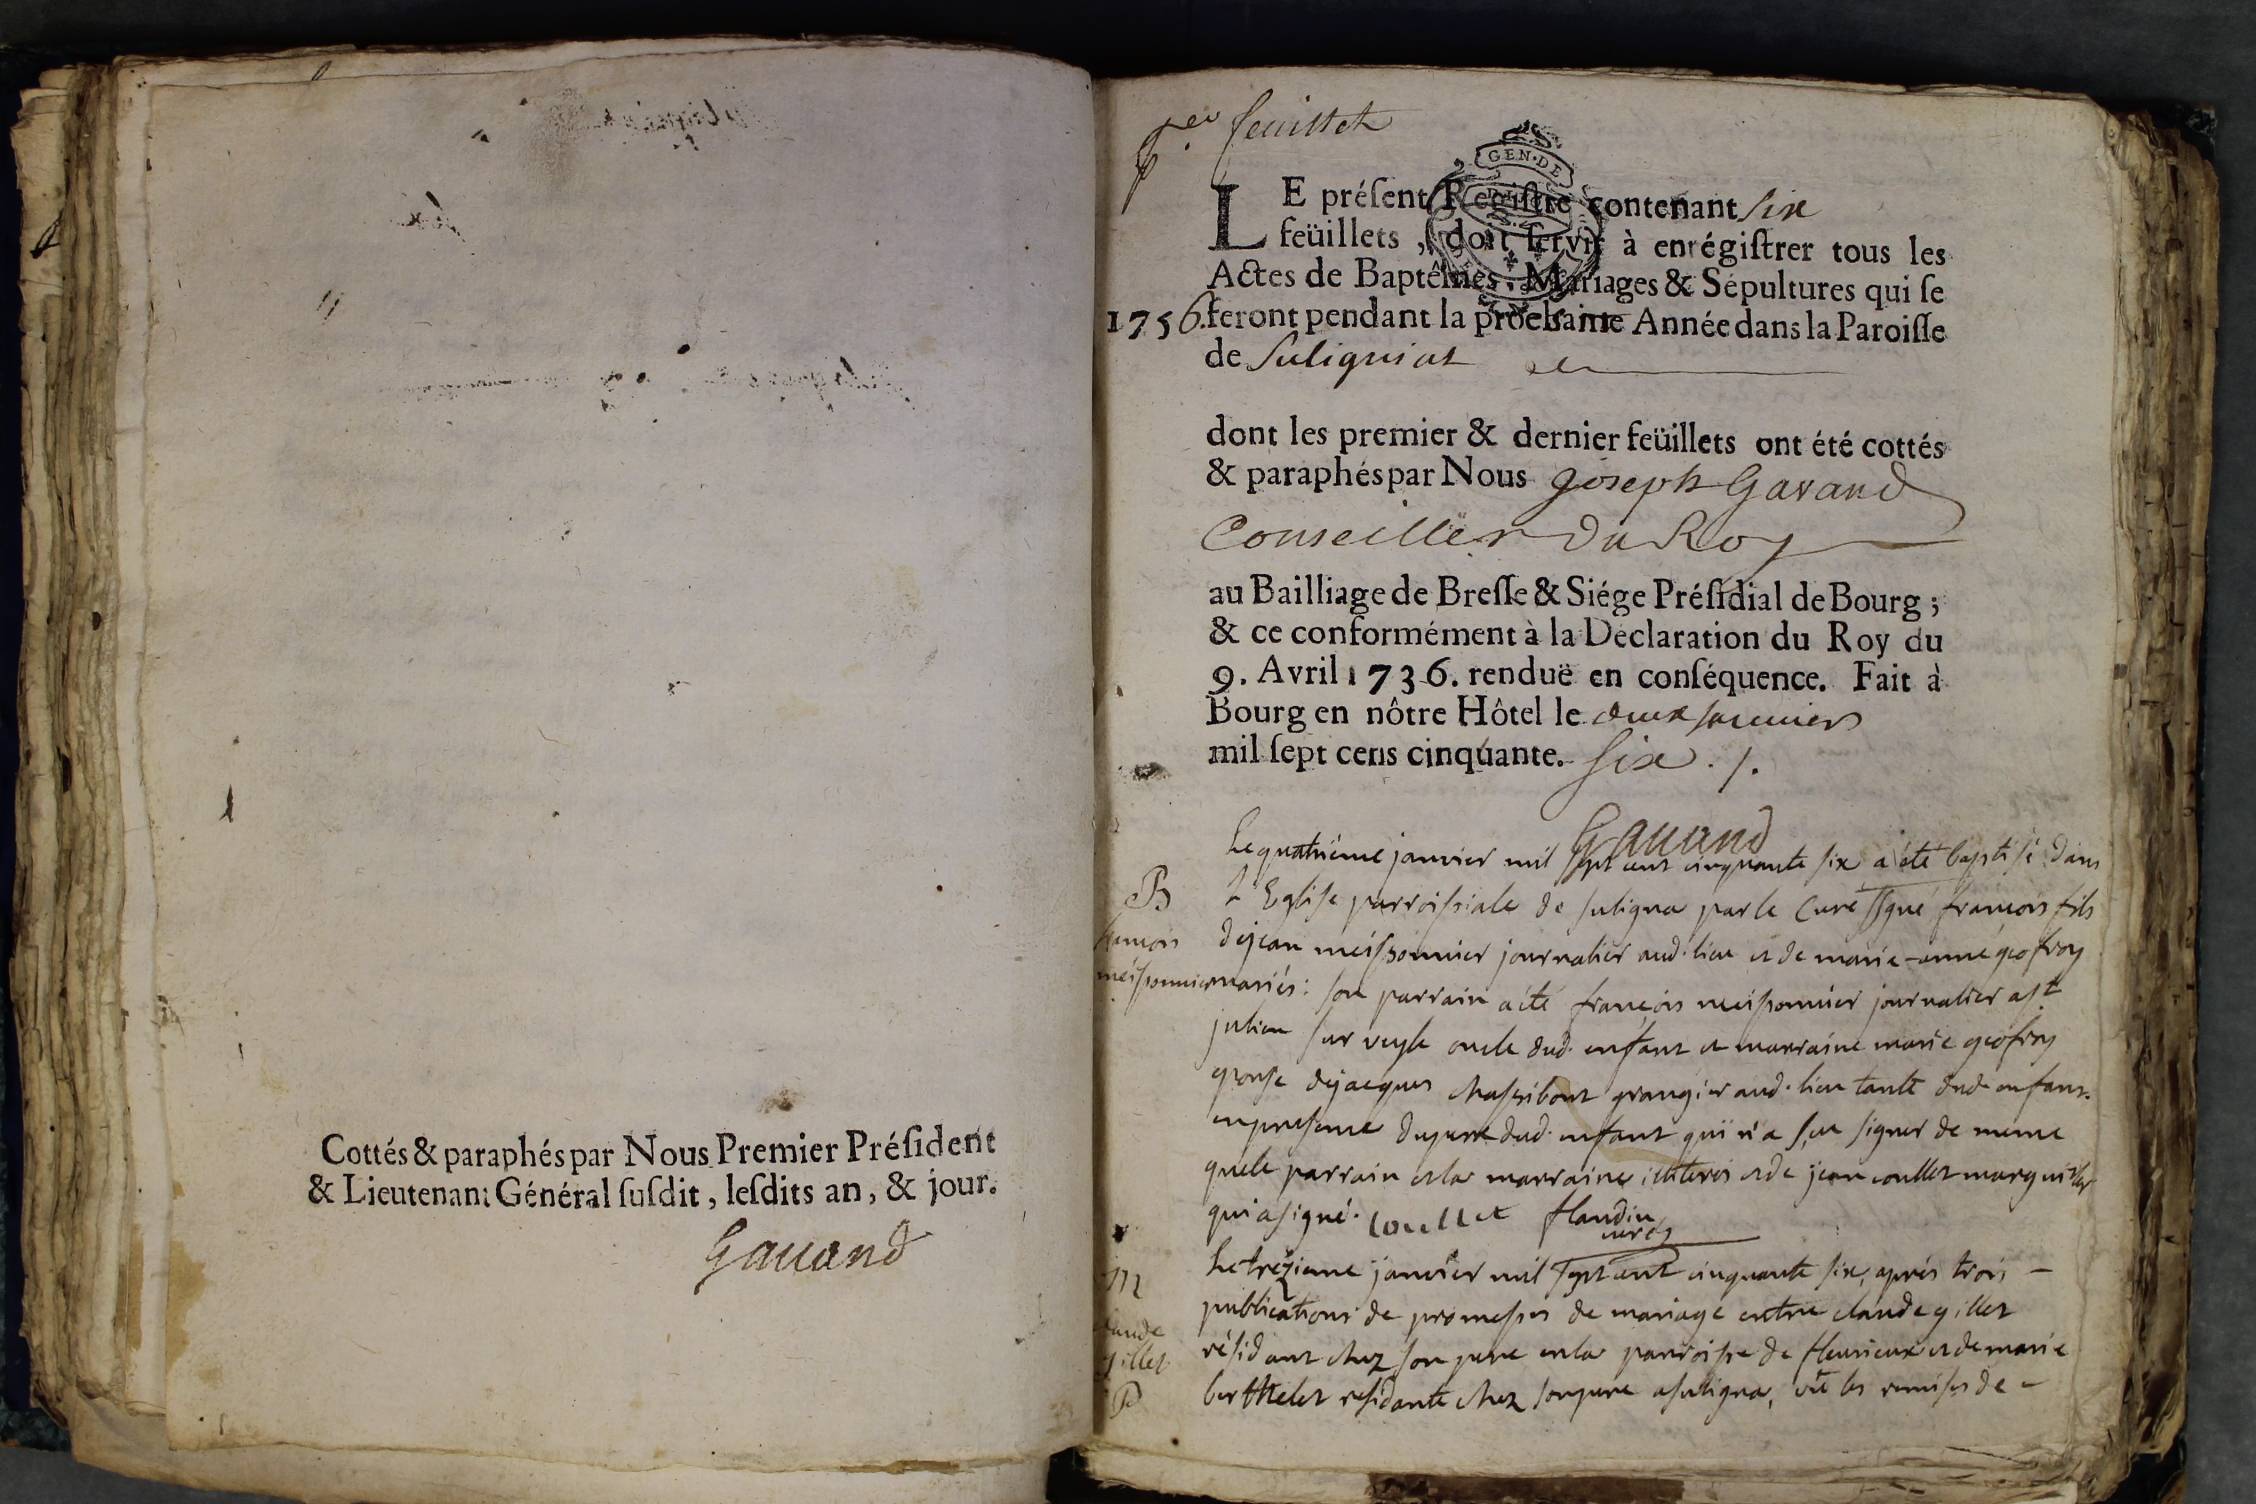 Cottés & paraphés par Nous Premier Préſident
& Lieutenant Général ſuſdit, leſdits an, & jour.
Gauand
feuillet
GEN·DE
LE préſent Regiſtre contenant six
feüillets, doit ſervir à enrégiſtrer tous les
Actes de Baptêmes, Mariages & Sépultures qui ſe
1756. feront pendant la prochaine Année dans la Paroiſſe
de Suligniat
dont les premier & dernier feüillets ont été cottés
& paraphés par Nous Joseph Gavand
Conseiller du Roy
au Bailliage de Breſſe & Siége Préſidial de Bourg ;
& ce conformément à la Déclaration du Roy du
9. Avril 1736. renduë en conſéquence. Fait à
Bourg en nôtre Hôtel le deux
mil ſept cens cinquante. six ./.
Gauand
Le quatriéme janvier mil sept cent cinquante six a été baptisé dans
B
L'Eglise parroissiale de suligna par le Curé ssgné françois fils
françois
de jean meissonnier journalier aud. lieu et de marie-anne geofroy
meissonnier
mariés: son parrain a été françois meissonnier journalier a st
julien sur veyle oncle dud. enfant et marraine marie geofroy
epouse de jacques grangier aud. lieu tante dud. enfant.
en presence du pere dud. enfant qui n'a sçu signer de meme
que le parrain et la marraine illiterés et de jean coullet marguillier
qui a signé. Coullet flandin
curé
M
Le trezieme janvier mil sept cent cinquante six, aprés trois
publications de promesses de mariage entre claude gillet
claude
gillet
résidant chez son pere en la parroisse de fleurieux et de marie
berthelet residante chez son pere a suligna, vû les remises de